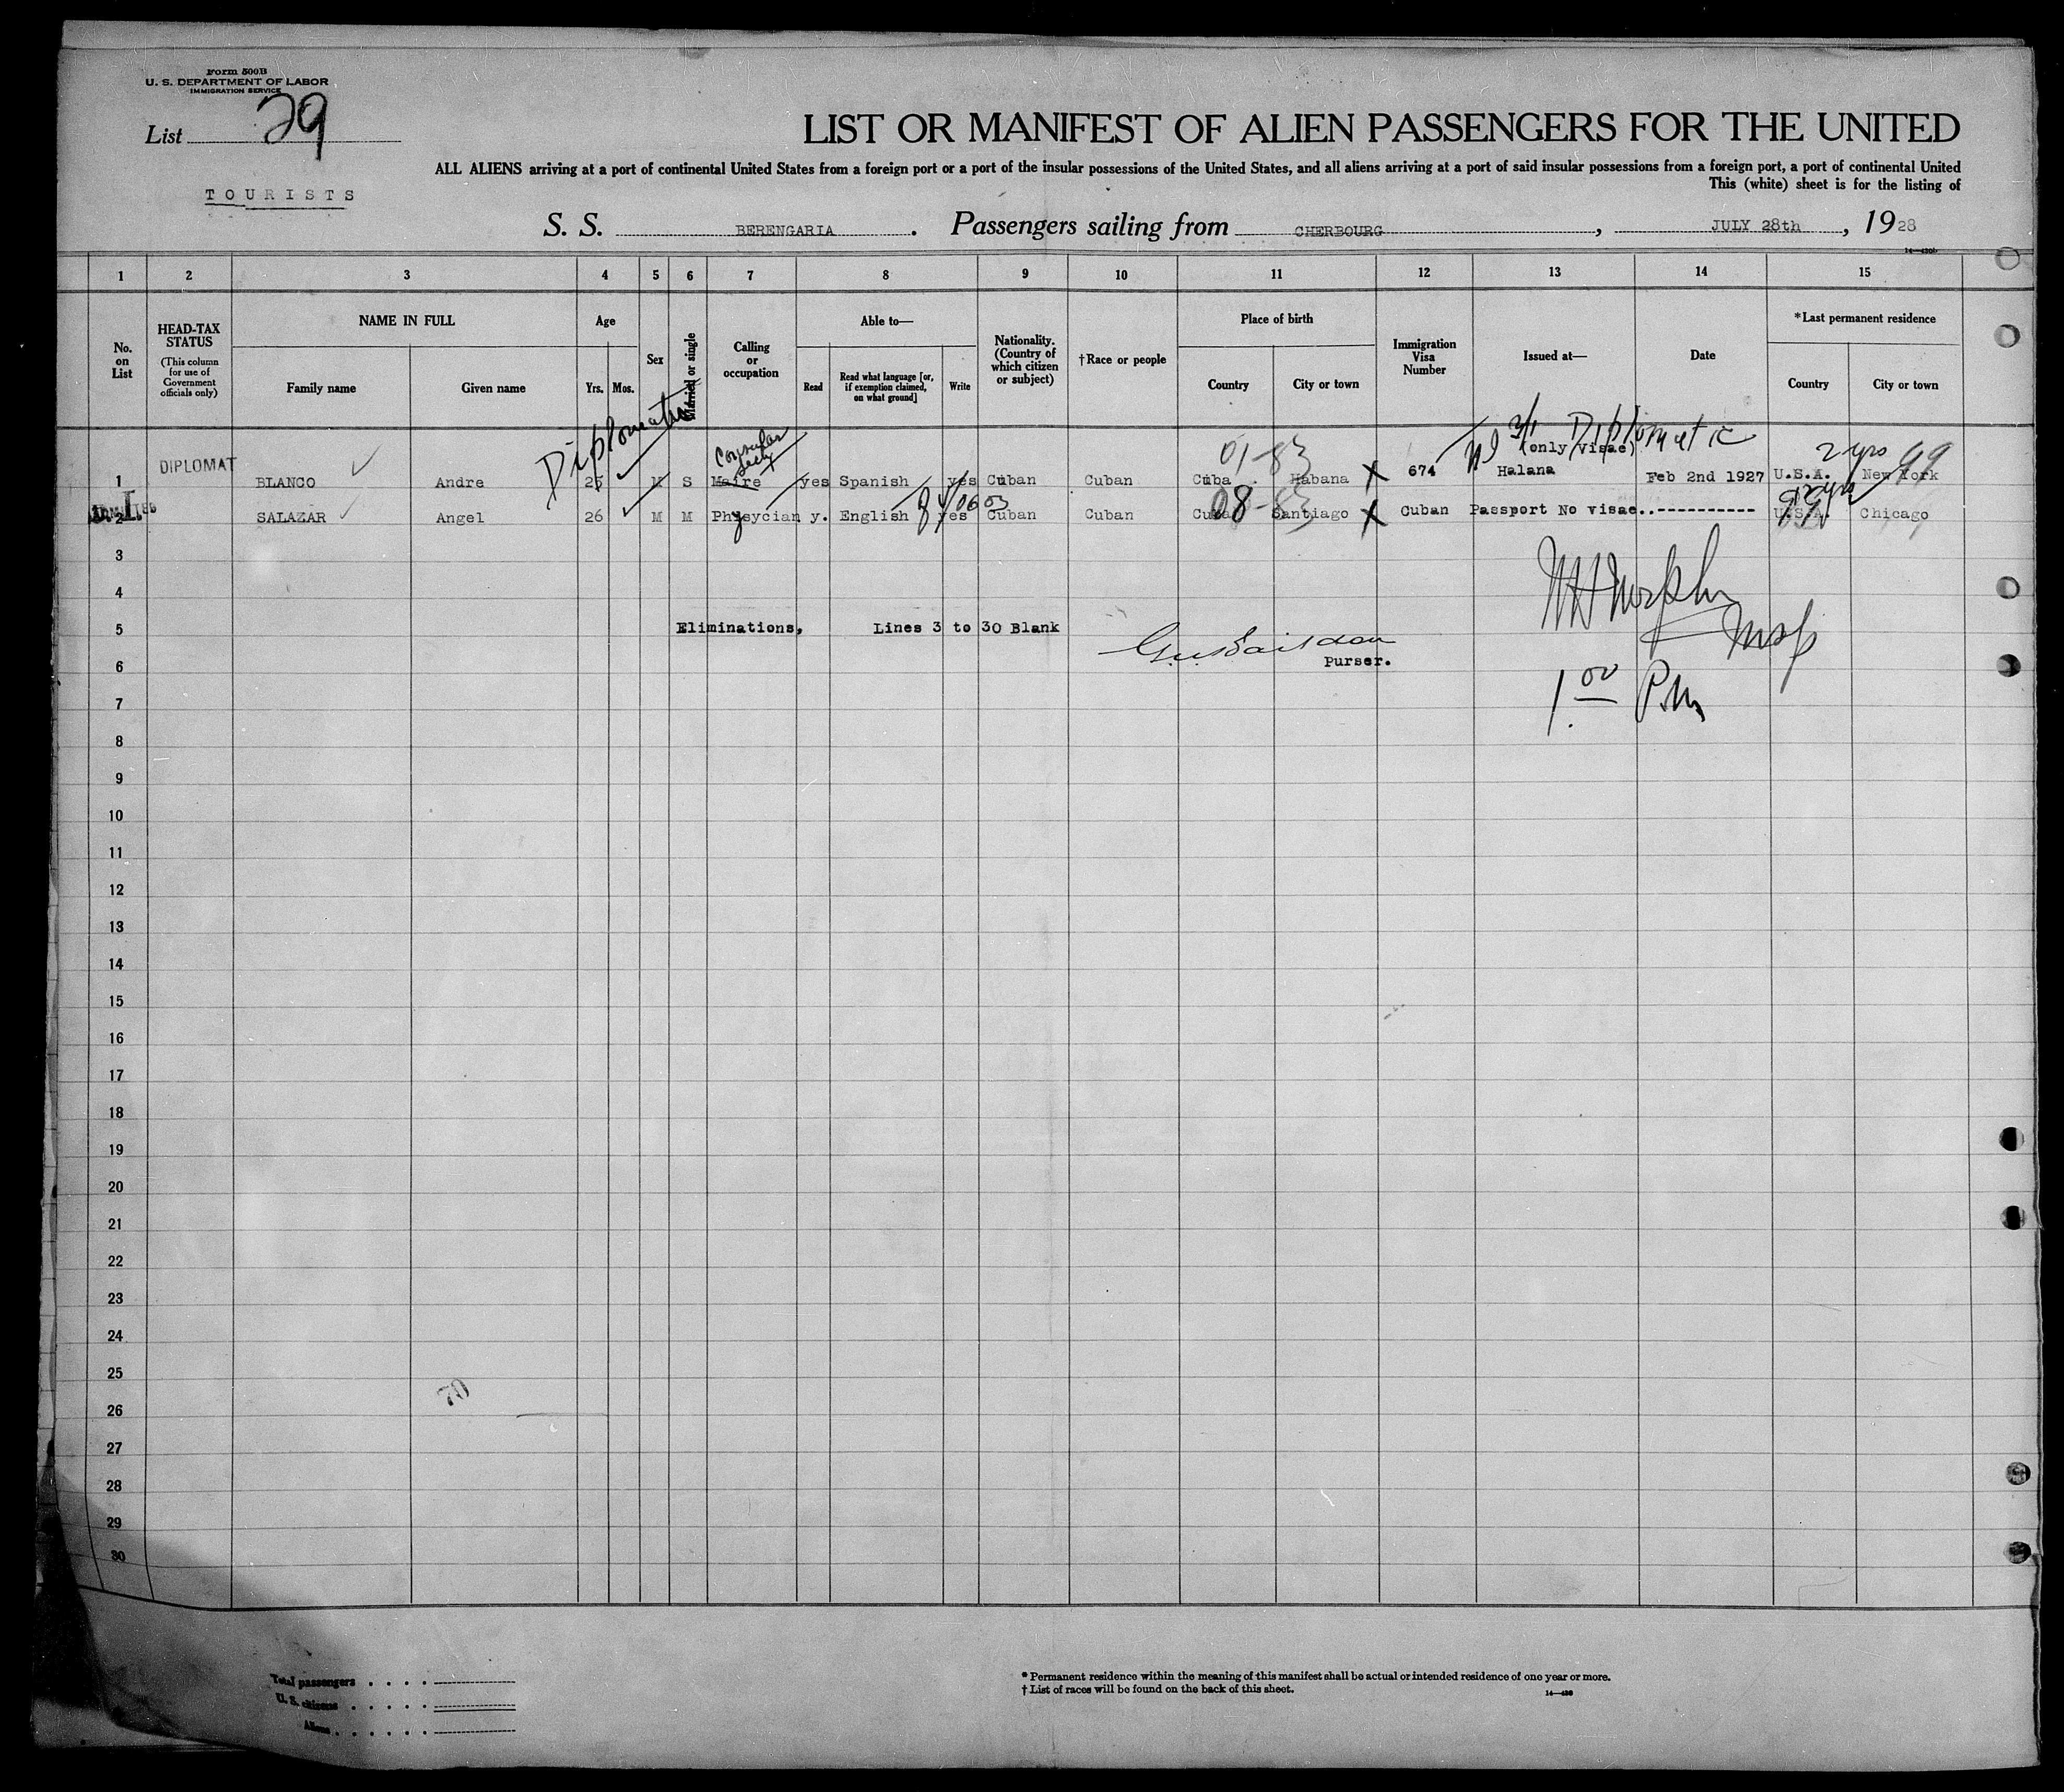 Form 500B
U. S. DEPARTMENT OF LABOR
IMMIGRATION SERVICE
List 29
TOURISTS
LIST OR MANIFEST OF ALIEN PASSENGERS FOR THE UNITED
ALL ALIENS arriving at a port of continental United States from a foreign port or a port of the insular possessions of the United States, and all aliens arriving at a port of said insular possessions from a foreign port, a port of continental United
This (white) sheet is for the listing of
S. S. BERENGARIA . Passengers sailing from CHERBOURG , JULY 28th , 1928
1 2 3 4 5 6 7 8 9 10 11 12 13 14 15
No. on List
HEAD-TAX STATUS (This column for use of Government officials only)
NAME IN FULL
Family name Given name
Age
Yrs. Mos.
Sex
Married or single
Calling or occupation
Able to—
Read Read what language [or, if exemption claimed, on what ground] Write
Nationality. (Country of which citizen or subject)
†Race or people
Place of birth
Country City or town
Immigration Visa Number
Issued at—
Date
*Last permanent residence
Country City or town
Diplomatic Consular 01-83 3/1 Diplomatic 2 yrs 99
(only visae)
1 DIPLOMAT BLANCO Andre 25 M S Maire yes Spanish yes Cuban Cuban Cuba Habana X 674 Halana Feb 2nd 1927 U.S.A. New York
2 ADMITTED SALAZAR Angel 26 M M Physycian y. English yes Cuban Cuban Cuba Santiago X Cuban Passport No visae..----------- U.S.A. Chicago
08-83
3
4
5 Eliminations, Lines 3 to 30 Blank
6 Purser.
1.00 P.M
7
8
9
10
11
12
13
14
15
16
17
18
19
20
21
22
23
24
25
70
26
27
28
29
30
Total passengers
U. S. citizens
Aliens
* Permanent residence within the meaning of this manifest shall be actual or intended residence of one year or more.
† List of races will be found on the back of this sheet.